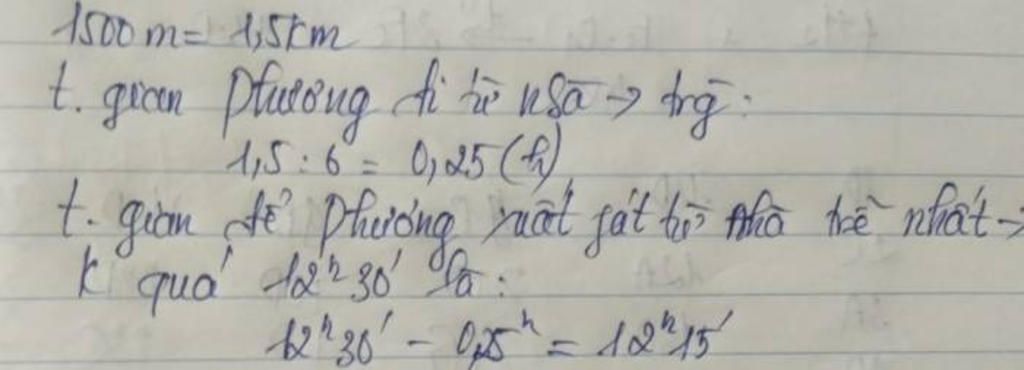 1500m = 1,5km
t. gian Phương đi từ nhà → trg:
1,5 : 6 = 0,25 (h)
t. gian để Phương xuất phát từ nhà trễ nhất →
k quá 12h30' là:
12h30' - 0,25h = 12h15'